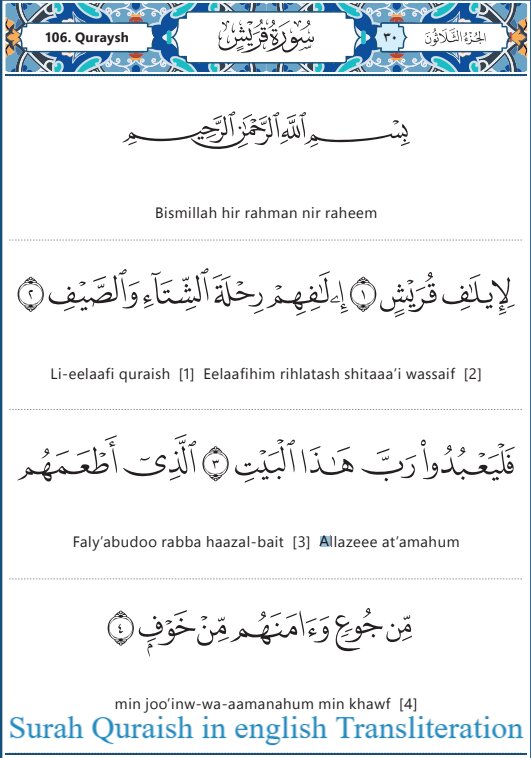 106. Quraysh سُورَةُ قُرَيْشٍ ٣٠ الجُزءُ الثَّلَاثُونَ
بِسْمِ ٱللَّهِ ٱلرَّحْمَٰنِ ٱلرَّحِيمِ
Bismillah hir rahman nir raheem
لِإِيلَٰفِ قُرَيْشٍ ١ إِۦلَٰفِهِمْ رِحْلَةَ ٱلشِّتَآءِ وَٱلصَّيْفِ ٢
Li-eelaafi quraish [1] Eelaafihim rihlatash shitaaa’i wassaif [2]
فَلْيَعْبُدُوا۟ رَبَّ هَٰذَا ٱلْبَيْتِ ٣ ٱلَّذِىٓ أَطْعَمَهُم
Faly’abudoo rabba haazal-bait [3] Allazeee at’amahum
مِّن جُوعٍ وَءَامَنَهُم مِّنْ خَوْفٍۭ ٤
min joo’inw-wa-aamanahum min khawf [4]
Surah Quraish in english Transliteration